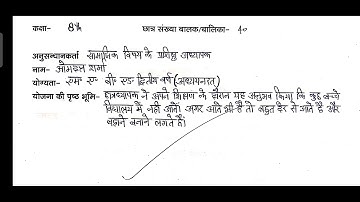 कक्षा- 8th छात्र संख्या बालक/बालिका- 40
अनुसन्धानकर्ता सामाजिक विषय के प्रशिक्षु अध्यापक
नाम- ओमदत्त शर्मा
योग्यता- एम० ए० बी० एड० द्वितीय वर्ष (अध्ययनरत)
योजना की पृष्ठ भूमि- छात्राध्यापक ने अपने शिक्षण के दौरान यह अनुभव किया कि कुछ बच्चे
विद्यालय में नहीं आते। अगर आते भी है तो बहुत देर से आते है और
बहाने बनाने लगते हैं।